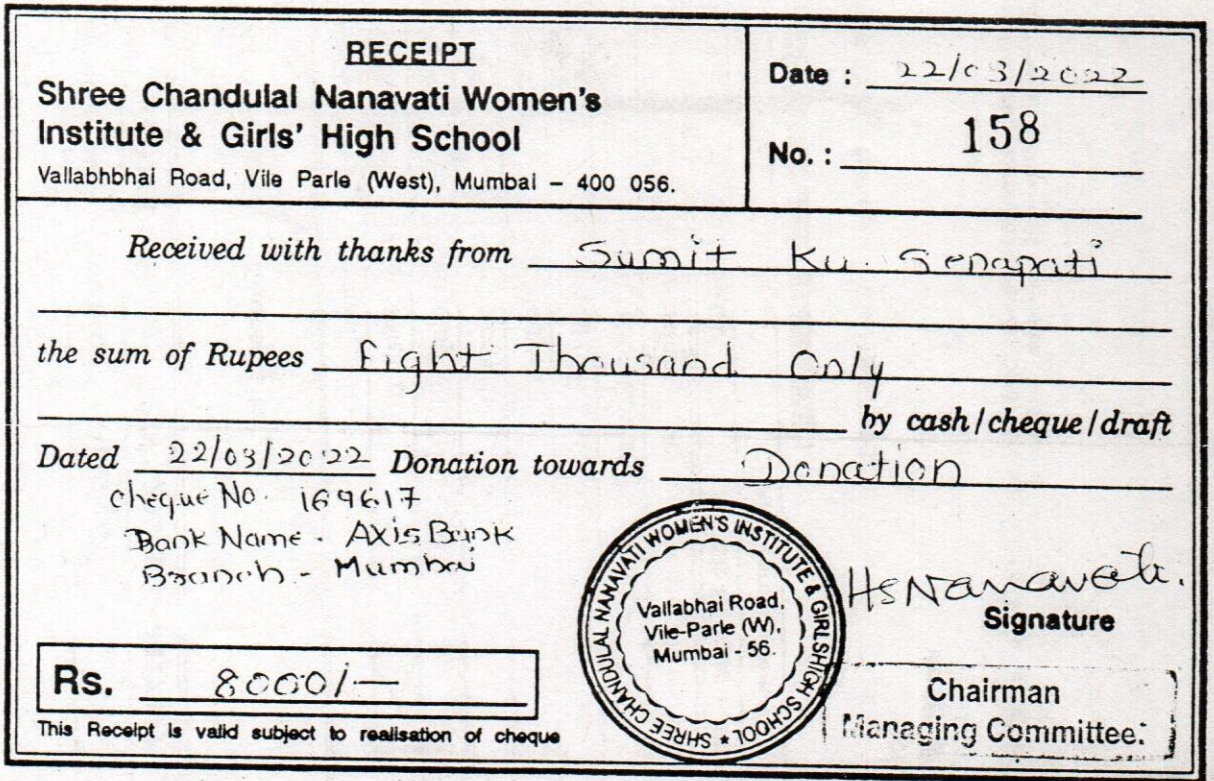 RECEIPT
Shree Chandulal Nanavati Women's
Institute & Girls' High School
Vallabhbhai Road, Vile Parle (West), Mumbai – 400 056.
Date : 22/03/2022
No. : 158
Received with thanks from Sumit Ku. Senapati
the sum of Rupees Eight Thousand Only
by cash/cheque/draft
Dated 22/03/2022 Donation towards Donation
cheque No. 169617
Bank Name - Axis Bank
Branch - Mumbai
SHREE CHANDULAL NANAVATI WOMEN'S INSTITUTE & GIRLS HIGH SCHOOL *
Vallabhai Road,
Vile-Parle (W),
Mumbai - 56.
HSNanavati.
Signature
Chairman
Managing Committee.
Rs. 8000/—
This Receipt is valid subject to realisation of cheque